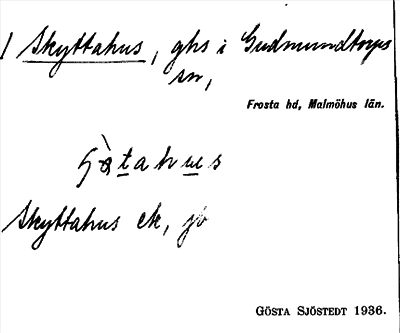 1 Skyttahus, ghs i Gudmundtorps
sn,
Frosta hd, Malmöhus län.
Skyttahus ek, jb
GÖSTA SJÖSTEDT 1936.